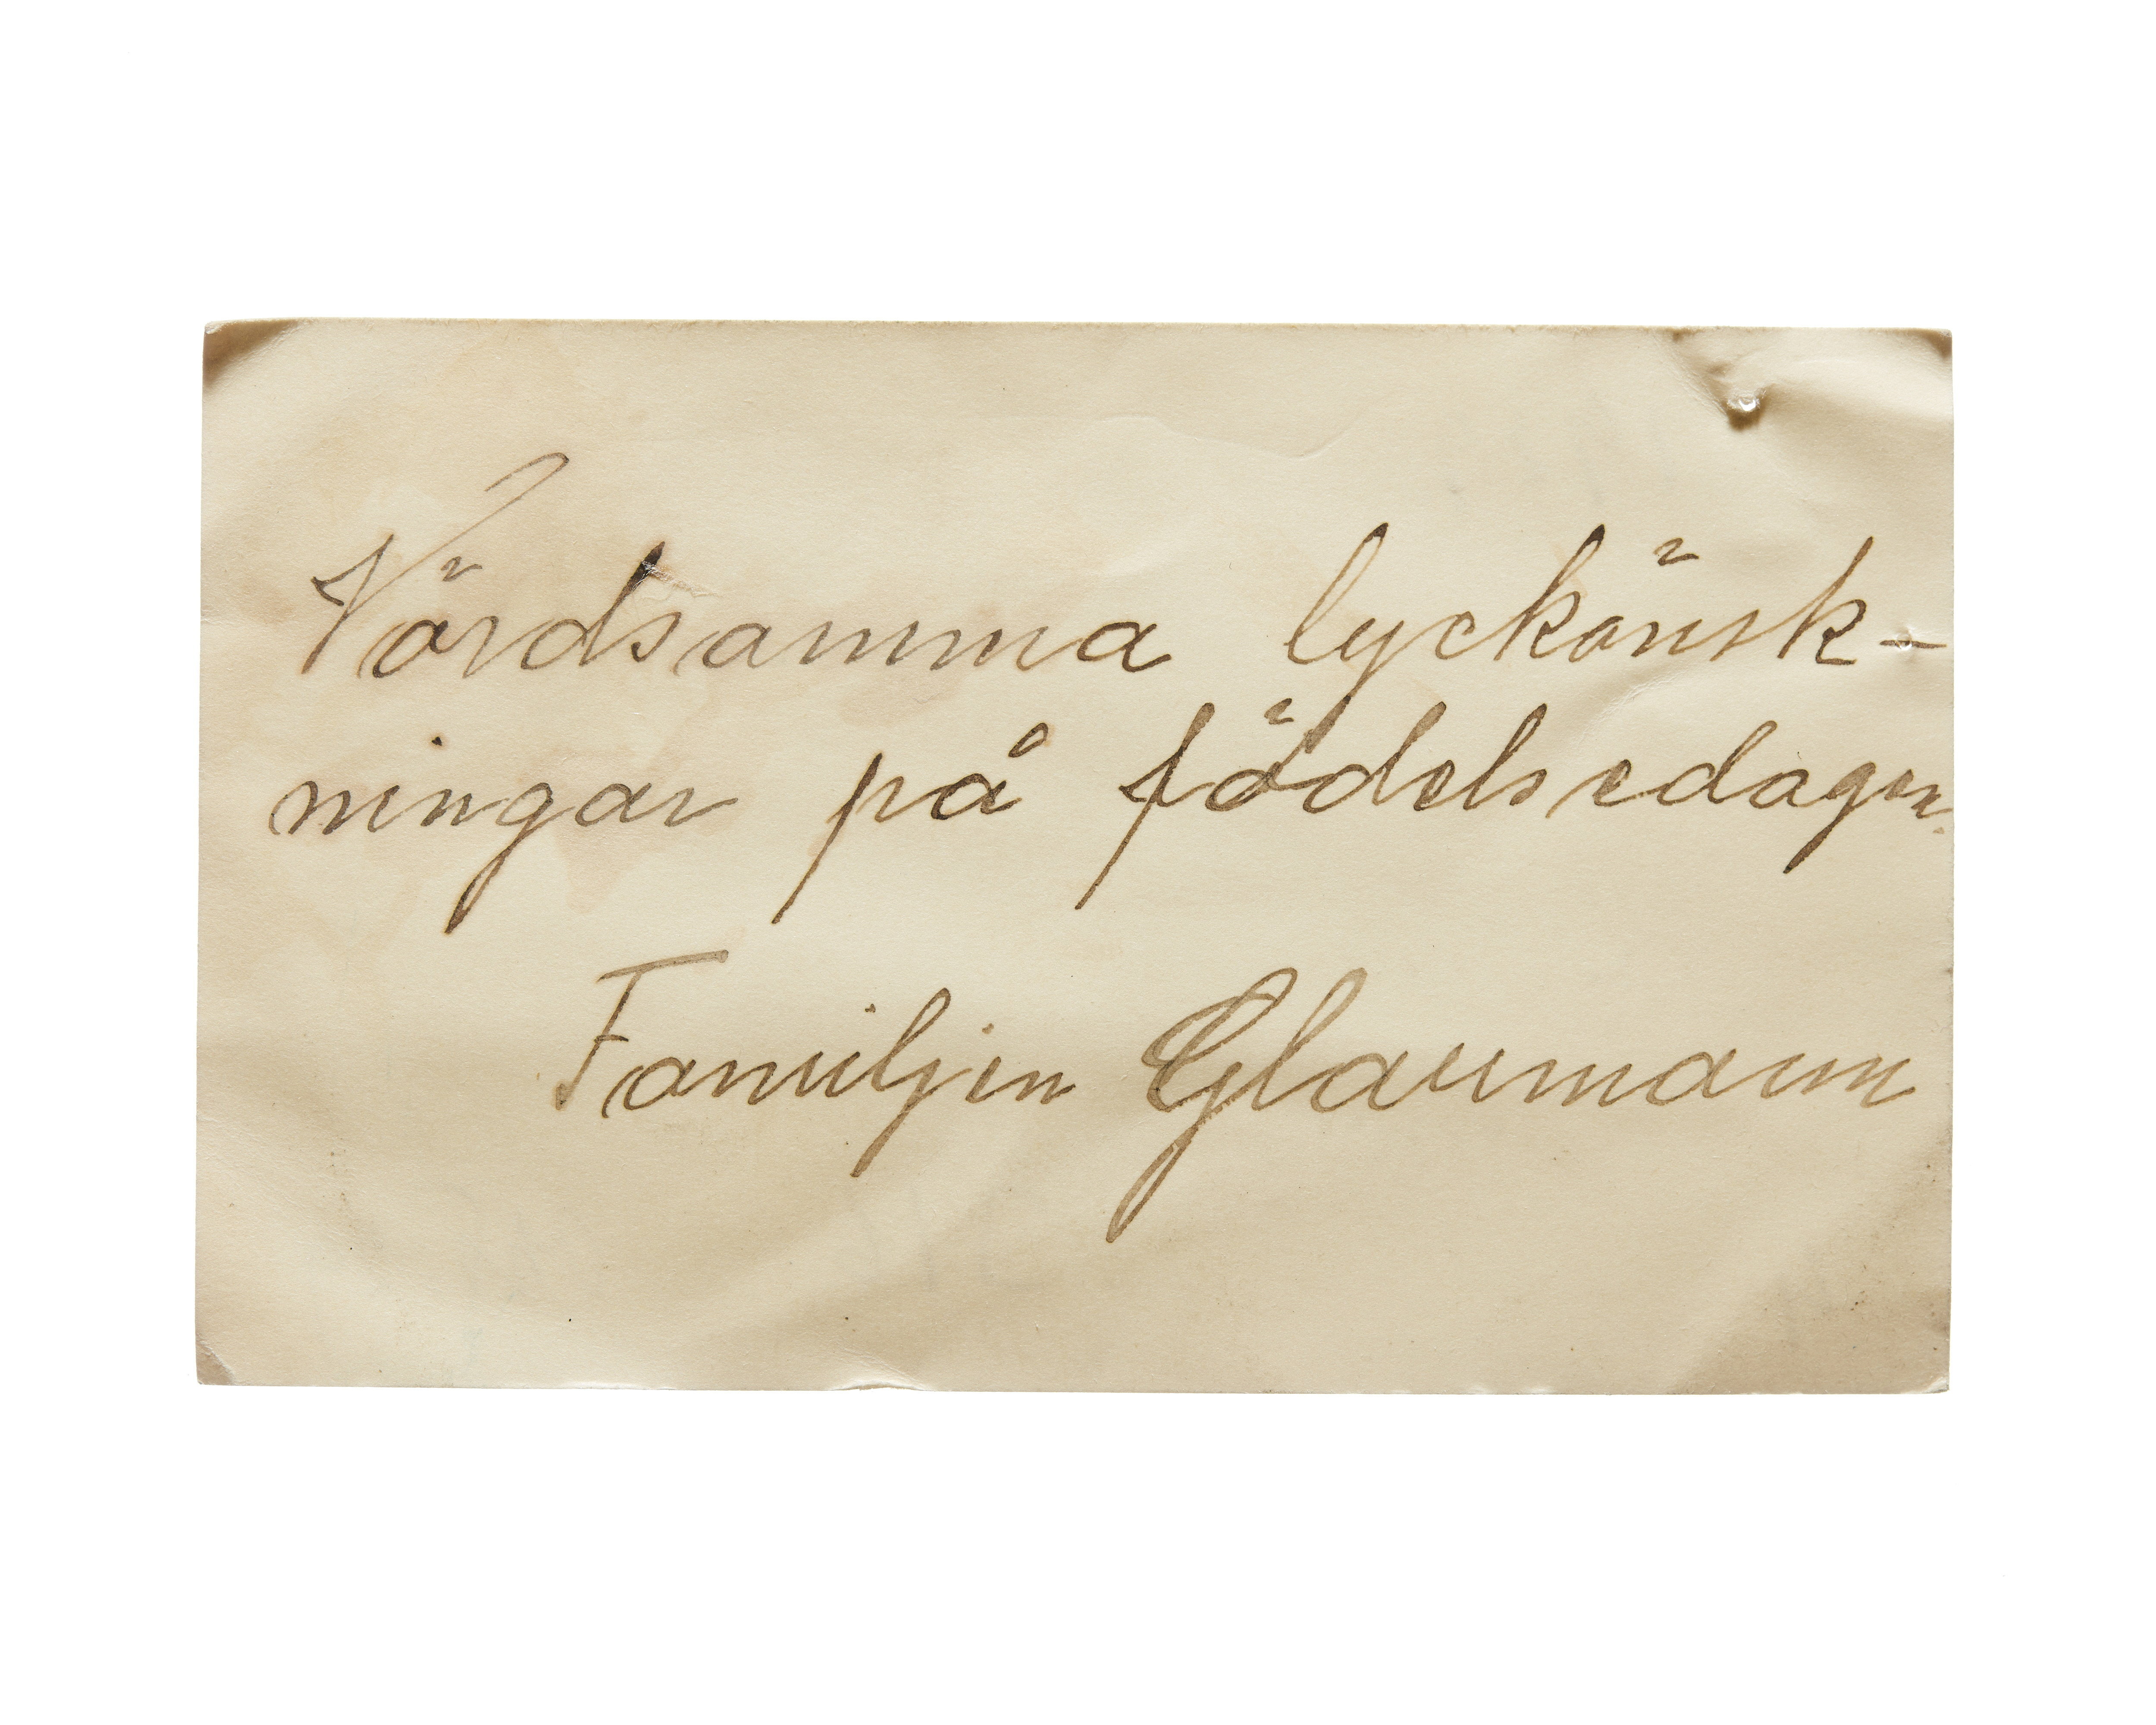 Vördsamma lyckönsk-
ningar på födelsedagen.
Familjen Glaumann